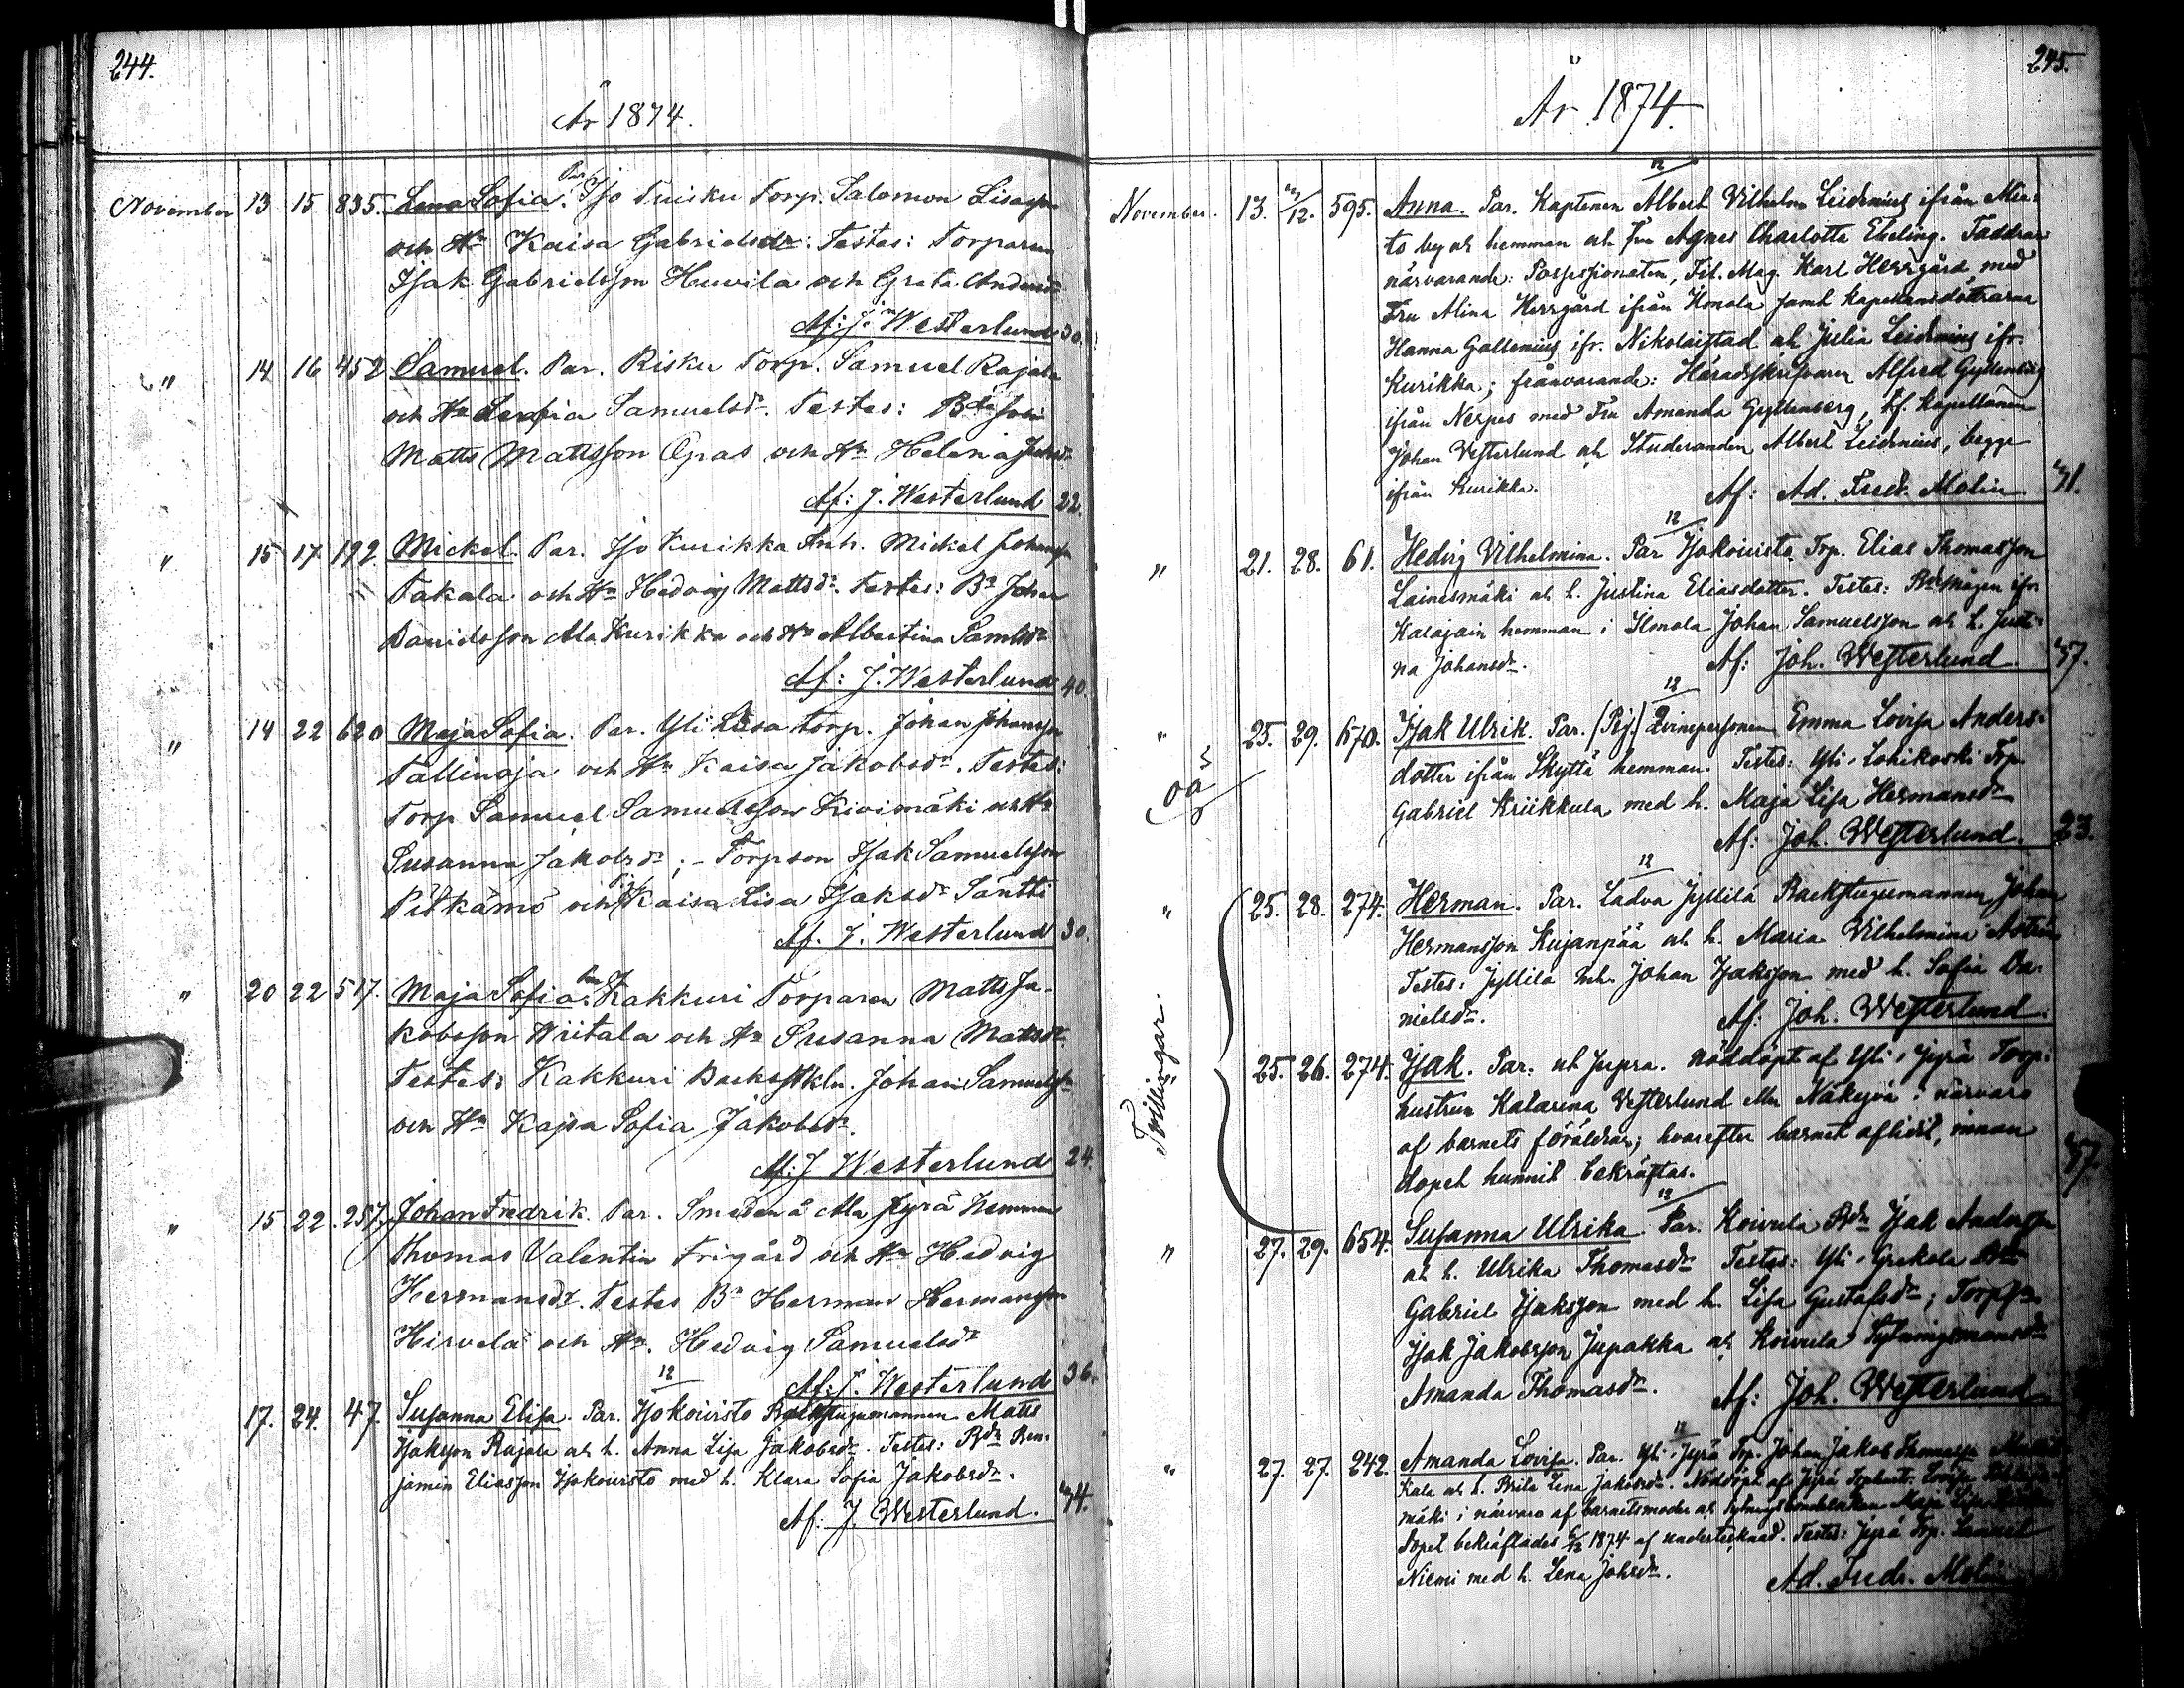 244.
År 1874.
November 13 15 835. Lena Sofia. Par. Iso Tuisku Torp. Salomon Lisasson
och Hu Kaisa Gabrielsdr. Testes: Torparen
Isak Gabrielsson Huvila och Greta Andersdr
Af: J. Westerlund 30.
" 14 16 452 Samuel. Par. Risku Torp. Samuel Rajala
och Hu Serafia Samuelsdr. Testes:
Matts Mattsson Opas och Hu Helena
Af: J. Westerlund 22.
" 15 17 192 Mickel. Par. Iso Kurikka Inh. Mickel Johansson
Takala och Hu Hedvig Mattsdr. Testes: Bn Johan
Danielsson Ala Kurikka och Hu Albertina Samlsdr
Af: J. Westerlund 40.
" 14 22 620 Maja Sofia. Par. Yli Lisa torp. Johan Johansson
Tallinoja och Hu Kaisa Jakobsdr. Testes:
Torp Samuel Samuelsson Kivimäki och Hu
Susanna Jakobsdr; - Torpson Isak Samuelsson
Pitkämö och Pig. Kaisa Lisa Isaksdr Säntti
Af. J. Westerlund 30.
" 20 22 517. Maja Sofia. Par. Kakkuri Torparen Matts Ja-
kobsson Wiitala och Hu Susanna Mattsdr.
Testes: Kakkuri Backstkln. Johan Samuelsson
och Hu Kajsa Sofia Jakobsdr.
Af: J Westerlund 24.
" 15 22. 257. Johan Fredrik. Par. Smeden å Ala Jyrä Hemman
Thomas Valentin Frigård och Hu Hedvig
Hermansdr. Testes Bn Herman Hermansson
Hirvelä och Hu. Hedvig Samuelsdr
Af: J. Westerlund 36.
12
17. 24. 47. Susanna Elisa. Par. Isokoivisto Backstugumannen Matts
Isaksson Rajala och h. Anna Lisa Jakobsdr. Testes: Bdn Ben-
jamin Eliasson Isokoivisto med h. Klara Sofia Jakobsdr.
Af: J. Westerlund. 74.
245.
År 1874.
12
November. 13. 12. 595. Anna. Par. Kaptenen Albert Vilhelm Leidenius ifrån Mie-
to by och hemman och Fru Agnes Charlotta Ebeling. Faddrar
närvarande: Possessionaten, Fil. Mag. Karl Herrgård med
Fru Alina Herrgård ifrån Ilmola samt kapellansdöttrarna
Hanna Gallenius ifr. Nikolaistad och Julia Leidenius ifr.
Kurikka; frånvarande: Häradsskrifvaren Alfred Gyllenberg
ifrån Nerpes med Fru Amanda Gyllenberg, tf. kapellanen
Johan Westerlund och Studeranden Albert Leidenius, begge
ifrån Kurikka. Af: Ad. Fredr. Molin.
12
" 21. 28. 61. Hedvig Vilhelmina. Par Isokoivisto Trp. Elias Thomasson
Lainesmäki och h. Justina Eliasdotter. Testes: Bdemågen ifr.
Kalajain hemman i Ilmola Johan Samuelsson och h. Justi-
na Johansdr. Af: Joh. Westerlund.
12
" 25. 29. 670. Isak Ulrik. Par. (Pig.) Qvinspersonen Emma Lovisa Anders-
dotter ifrån Skyttä hemman. Testes: Yli-Lohikoski Trp.
Gabriel Kriikkula med h. Maja Lisa Hermansdr
Af: Joh. Westerlund. 23.
oä
12
" 25. 28. 274. Herman. Par. Ladva Jyllilä Backstugumannen Johan
Hermansson Kujanpää och h. Maria Vilhelmina
Testes: Jyllilä Inh. Johan Isaksson med h. Sofia Da-
nielsdr. Af: Joh. Westerlund.
Tvillingar.
25. 26. 274. Isak. Par. ut supra. Nöddöpt af Yli-Jyrä Torp-
hustrun Katarina Westerlund eller Näkyvä i närvaro
af barnets föräldrar; hvarefter barnet aflidit, innan
dopet hunnit bekräftas.
12
" 27. 29. 654. Susanna Ulrika. Par. Koivula Bdn Isak Andersson
och h. Ulrika Thomasdr Testes: Yli-Grekola Bdn
Gabriel Isaksson med h. Lisa Gustafsdr; Torps.
Isak Jakobsson Jupakka och Koivula Sytningsmansdr
Amanda Thomasdr. Af: Joh. Westerlund
12
" 27. 27. 242. Amanda Lovisa. Par. Yli-Jyrä Trp. Johan Jakob Thomasson
kala och h. Brita Lena Jakobsdr. Nöddöpt af Jyrä Torphustr. Lovisa
mäki i närvaro af barnetsmoder och Sytningsbondenkan Maja Lisa
Dopet bekräftades 6/12 1874 af undertecknad. Testes: Jyrä Trp. Samuel
Niemi med h. Lena Johsdr. Ad. Fredr. Molin